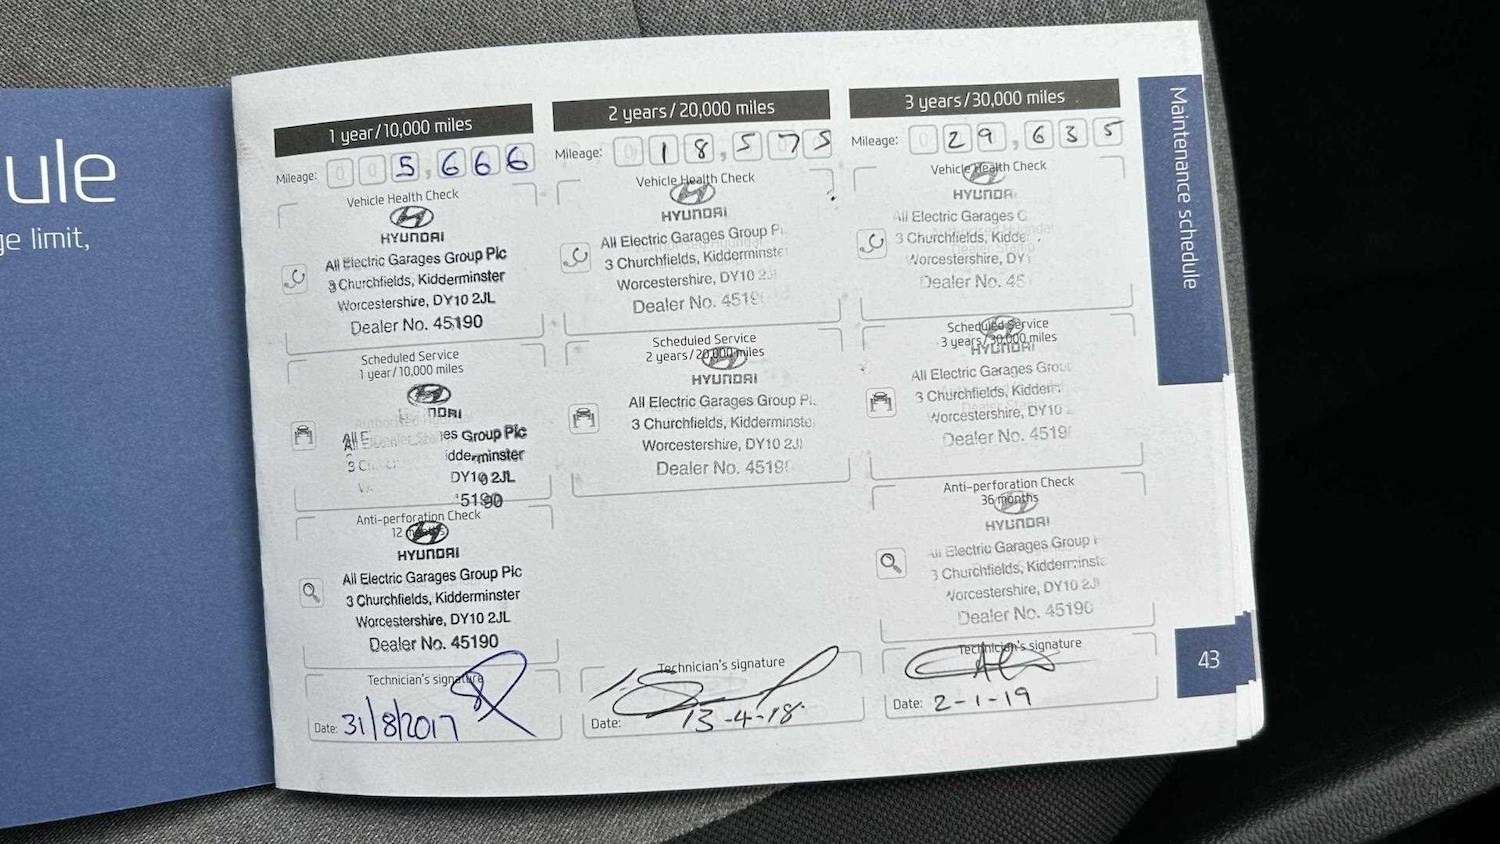 ule
ge limit,
1 year/10,000 miles
Mileage: 005,666
Vehicle Health Check
HYUNDAI
All Electric Garages Group Plc
3 Churchfields, Kidderminster
Worcestershire, DY10 2JL
Dealer No. 45190
Scheduled Service
1 year/10,000 miles
All
ges Group Plc
3
idderminster
DY10 2JL
5190
Anti-perforation Check
12
HYUNDAI
All Electric Garages Group Plc
3 Churchfields, Kidderminster
Worcestershire, DY10 2JL
Dealer No. 45190
Technician's signature
Date: 31/8/2017
2 years/20,000 miles
Mileage: 018,575
Vehicle Health Check
HYUNDAI
All Electric Garages Group P
3 Churchfields, Kidderminste
Worcestershire, DY10 2
Dealer No. 4519
Scheduled Service
2 years/20,000 miles
HYUNDAI
All Electric Garages Group P
3 Churchfields, Kidderminste
Worcestershire, DY10 2J
Dealer No. 4519
Technician's signature
Date: 13-4-18
3 years/30,000 miles
Mileage: 029,635
Vehicle Health Check
HYUNDAI
All Electric Garages G
3 Churchfields, Kidde
Worcestershire, DY1
Dealer No. 45
Scheduled Service
3 years/30,000 miles
HYUNDAI
All Electric Garages Grou
3 Churchfields, Kidder
Worcestershire, DY10
Dealer No. 4519
Anti-perforation Check
36 months
HYUNDAI
All Electric Garages Group
3 Churchfields, Kidderminste
Worcestershire, DY10 2J
Dealer No. 45190
Technician's signature
Date: 2-1-19
Maintenance schedule
43